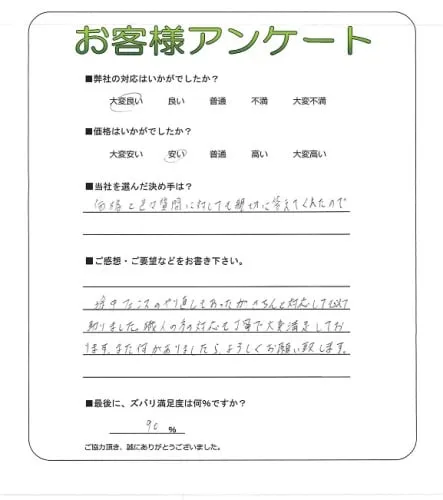 お客様アンケート
■弊社の対応はいかがでしたか？
大変良い 良い 普通 不満 大変不満
■価格はいかがでしたか？
大変安い 安い 普通 高い 大変高い
■当社を選んだ決め手は？
価格と色々質問に対しても親切に答えてくれたので
■ご感想・ご要望などをお書き下さい。
途中 のやり直しもあったが きちんと対応して
助りました。職人の方の対応も丁寧で大変満足してお
ります。また何かありましたら、よろしくお願い致します。
■最後に、ズバリ満足度は何%ですか？
90 %
ご協力頂き、誠にありがとうございました。